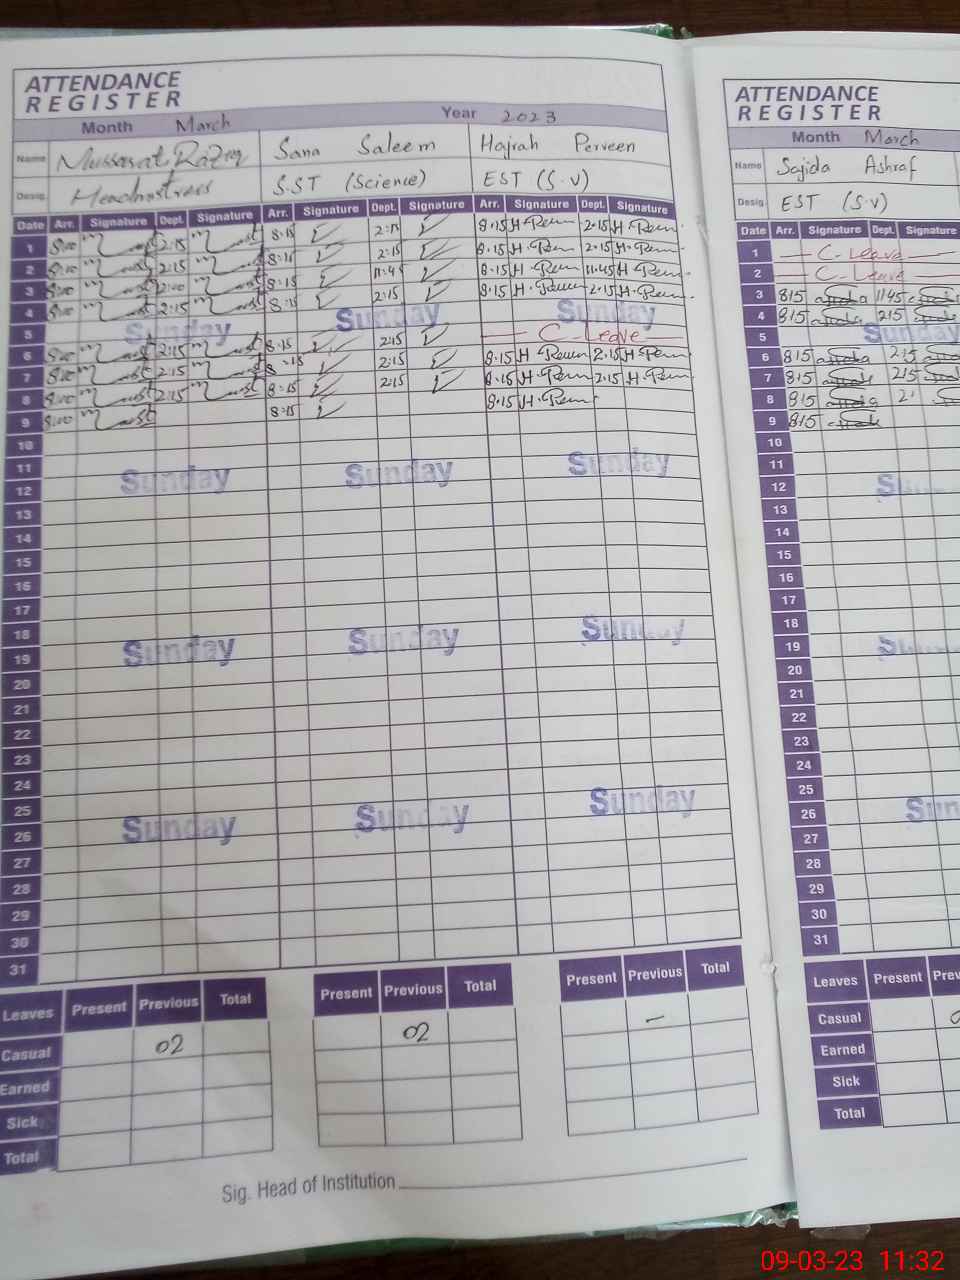 ATTENDANCE
REGISTER
Month March Year 2023
Name Mussarat Razaq Sana Saleem Hajrah Perveen
Desig. Headmistress S.ST (Science) EST (S.V)
Date Arr. Signature Dept. Signature Arr. Signature Dept. Signature Arr. Signature Dept. Signature
1 8:00 2:15 8:15 2:15 8.15 2.15
2 8:00 2:15 8:15 2:15 8.15 2.15
3 8:00 8:15 11:45 8.15 11.45
4 8:00 2:15 8:15 2:15 8.15 2.15
5 Sunday Sunday Sunday
6 8:00 2:15 8:15 2:15 C Leave
7 8:00 2:15 8:15 2:15 8.15 2.15
8 8:00 2:15 8:15 2:15 8.15 2.15
9 8:00 8:15 8.15
10
11
12 Sunday Sunday Sunday
13
14
15
16
17
18
19 Sunday Sunday Sunday
20
21
22
23
24
25
26 Sunday Sunday Sunday
27
28
29
30
31
Leaves Present Previous Total Present Previous Total Present Previous Total
Casual 02 02 –
Earned
Sick
Total
Sig. Head of Institution
ATTENDANCE
REGISTER
Month March
Name Sajida Ashraf
Desig. EST (S.V)
Date Arr. Signature Dept. Signature
1 C. Leave
2 C. Leave
3 815 1145
4 815 215
5 Sunday
6 815 215
7 815 215
8 815
9 815
10
11
12
13
14
15
16
17
18
19
20
21
22
23
24
25
26
27
28
29
30
31
Leaves Present
Casual
Earned
Sick
Total
09-03-23 11:32